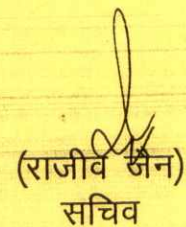 (राजीव जैन)
सचिव